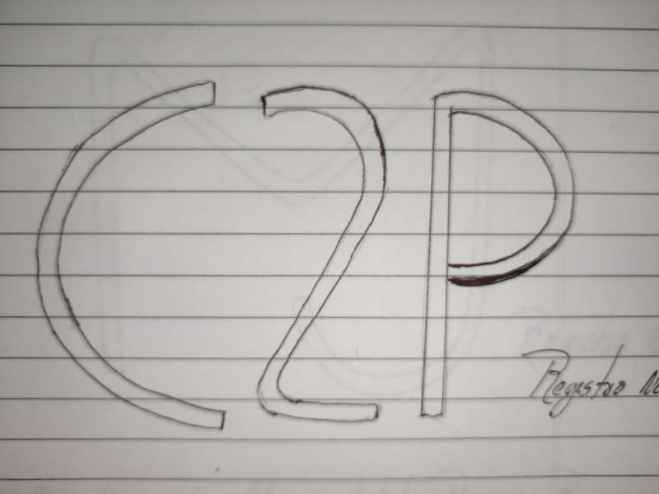 C2P
Registro